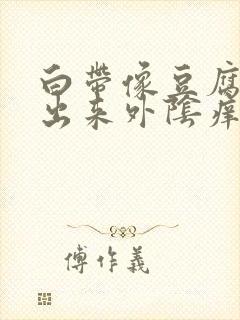 白帶像豆腐
出来外陰痒
傅作義